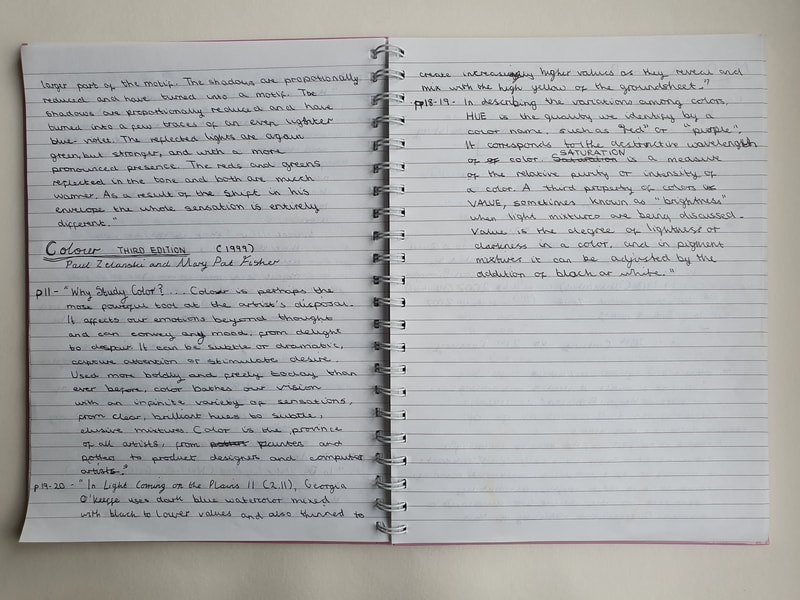 larger part of the motif. The shadows are propotionally
reduced and have turned into a motif. The
shadows are propotionally reduced and have
turned into a few traces of an even lighter
blue-mauve. The reflected lights are again
green, but stronger, and with a more
pronounced presence. The reds and greens
reflected in the tone and both are much
warmer. As a result of the shift in his
envelope the whole sensation is entirely
different."
Colour THIRD EDITION (1999)
Paul Zelanski and Mary Pat Fisher
p11 - "Why Study Color? ... Colour is perhaps the
most powerful tool at the artist's disposal.
It affects our emotions beyond thought
and can convey any mood, from delight
to despair. It can be subtle or dramatic,
capture attention or stimulate desire.
Used more boldly and freely today than
ever before, color bathes our vision
with an infinite variety of sensations,
from clear, brilliant hues to subtle,
elusive mixtures. Color is the province
of all artists, from painter and
potter to product designers and computer
artists."
p19-20 - "In Light Coming on the Plains II (2.11), Georgia
O'Keeffe uses dark blue watercolor mixed
with black to lower values and also thinned to
create increasingly higher values as they reveal and
mix with the high yellow of the groundsheet."
p18-19 - In describing the variations among colors,
HUE is the quality we identify by a
color name, such as "red" or "purple".
It corresponds to the distinctive wavelength
of color. SATURATION is a measure
of the relative purity or intensity of
a color. A third property of colors is
VALUE, sometimes known as "brightness"
when light mixtures are being discussed.
Value is the degree of lightness or
darkness in a color, and in pigment
mixtures it can be adjusted by the
addition of black or white."